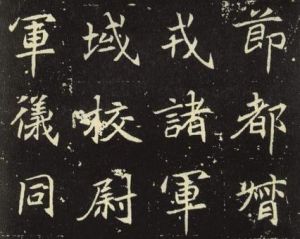 節都督
戎諸軍
域校尉
軍儀同